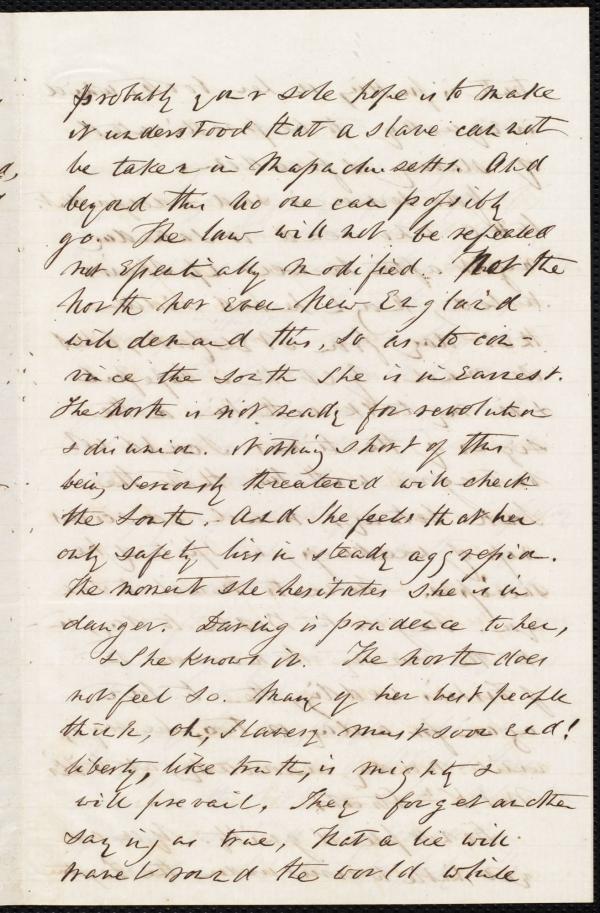 probably your sole hope is to make
it understood that a slave cannot
be taken in Massachusetts. And
beyond this no one can possibly
go. The law will not be repealed
nor essentially modified. Not the
North nor even New England
will demand this, so as to con-
vince the South she is in earnest.
The North is not ready for revolution
& disunion. Nothing short of this
being seriously threatened will check
the South. And she feels that her
only safety lies in steady aggression.
The moment she hesitates she is in
danger. Daring is prudence to her,
& she knows it. The North does
not feel so. Many of her best people
think, oh, slavery must soon end!
liberty, like truth, is mighty &
will prevail. They forget another
saying as true, that a lie will
travel round the world while